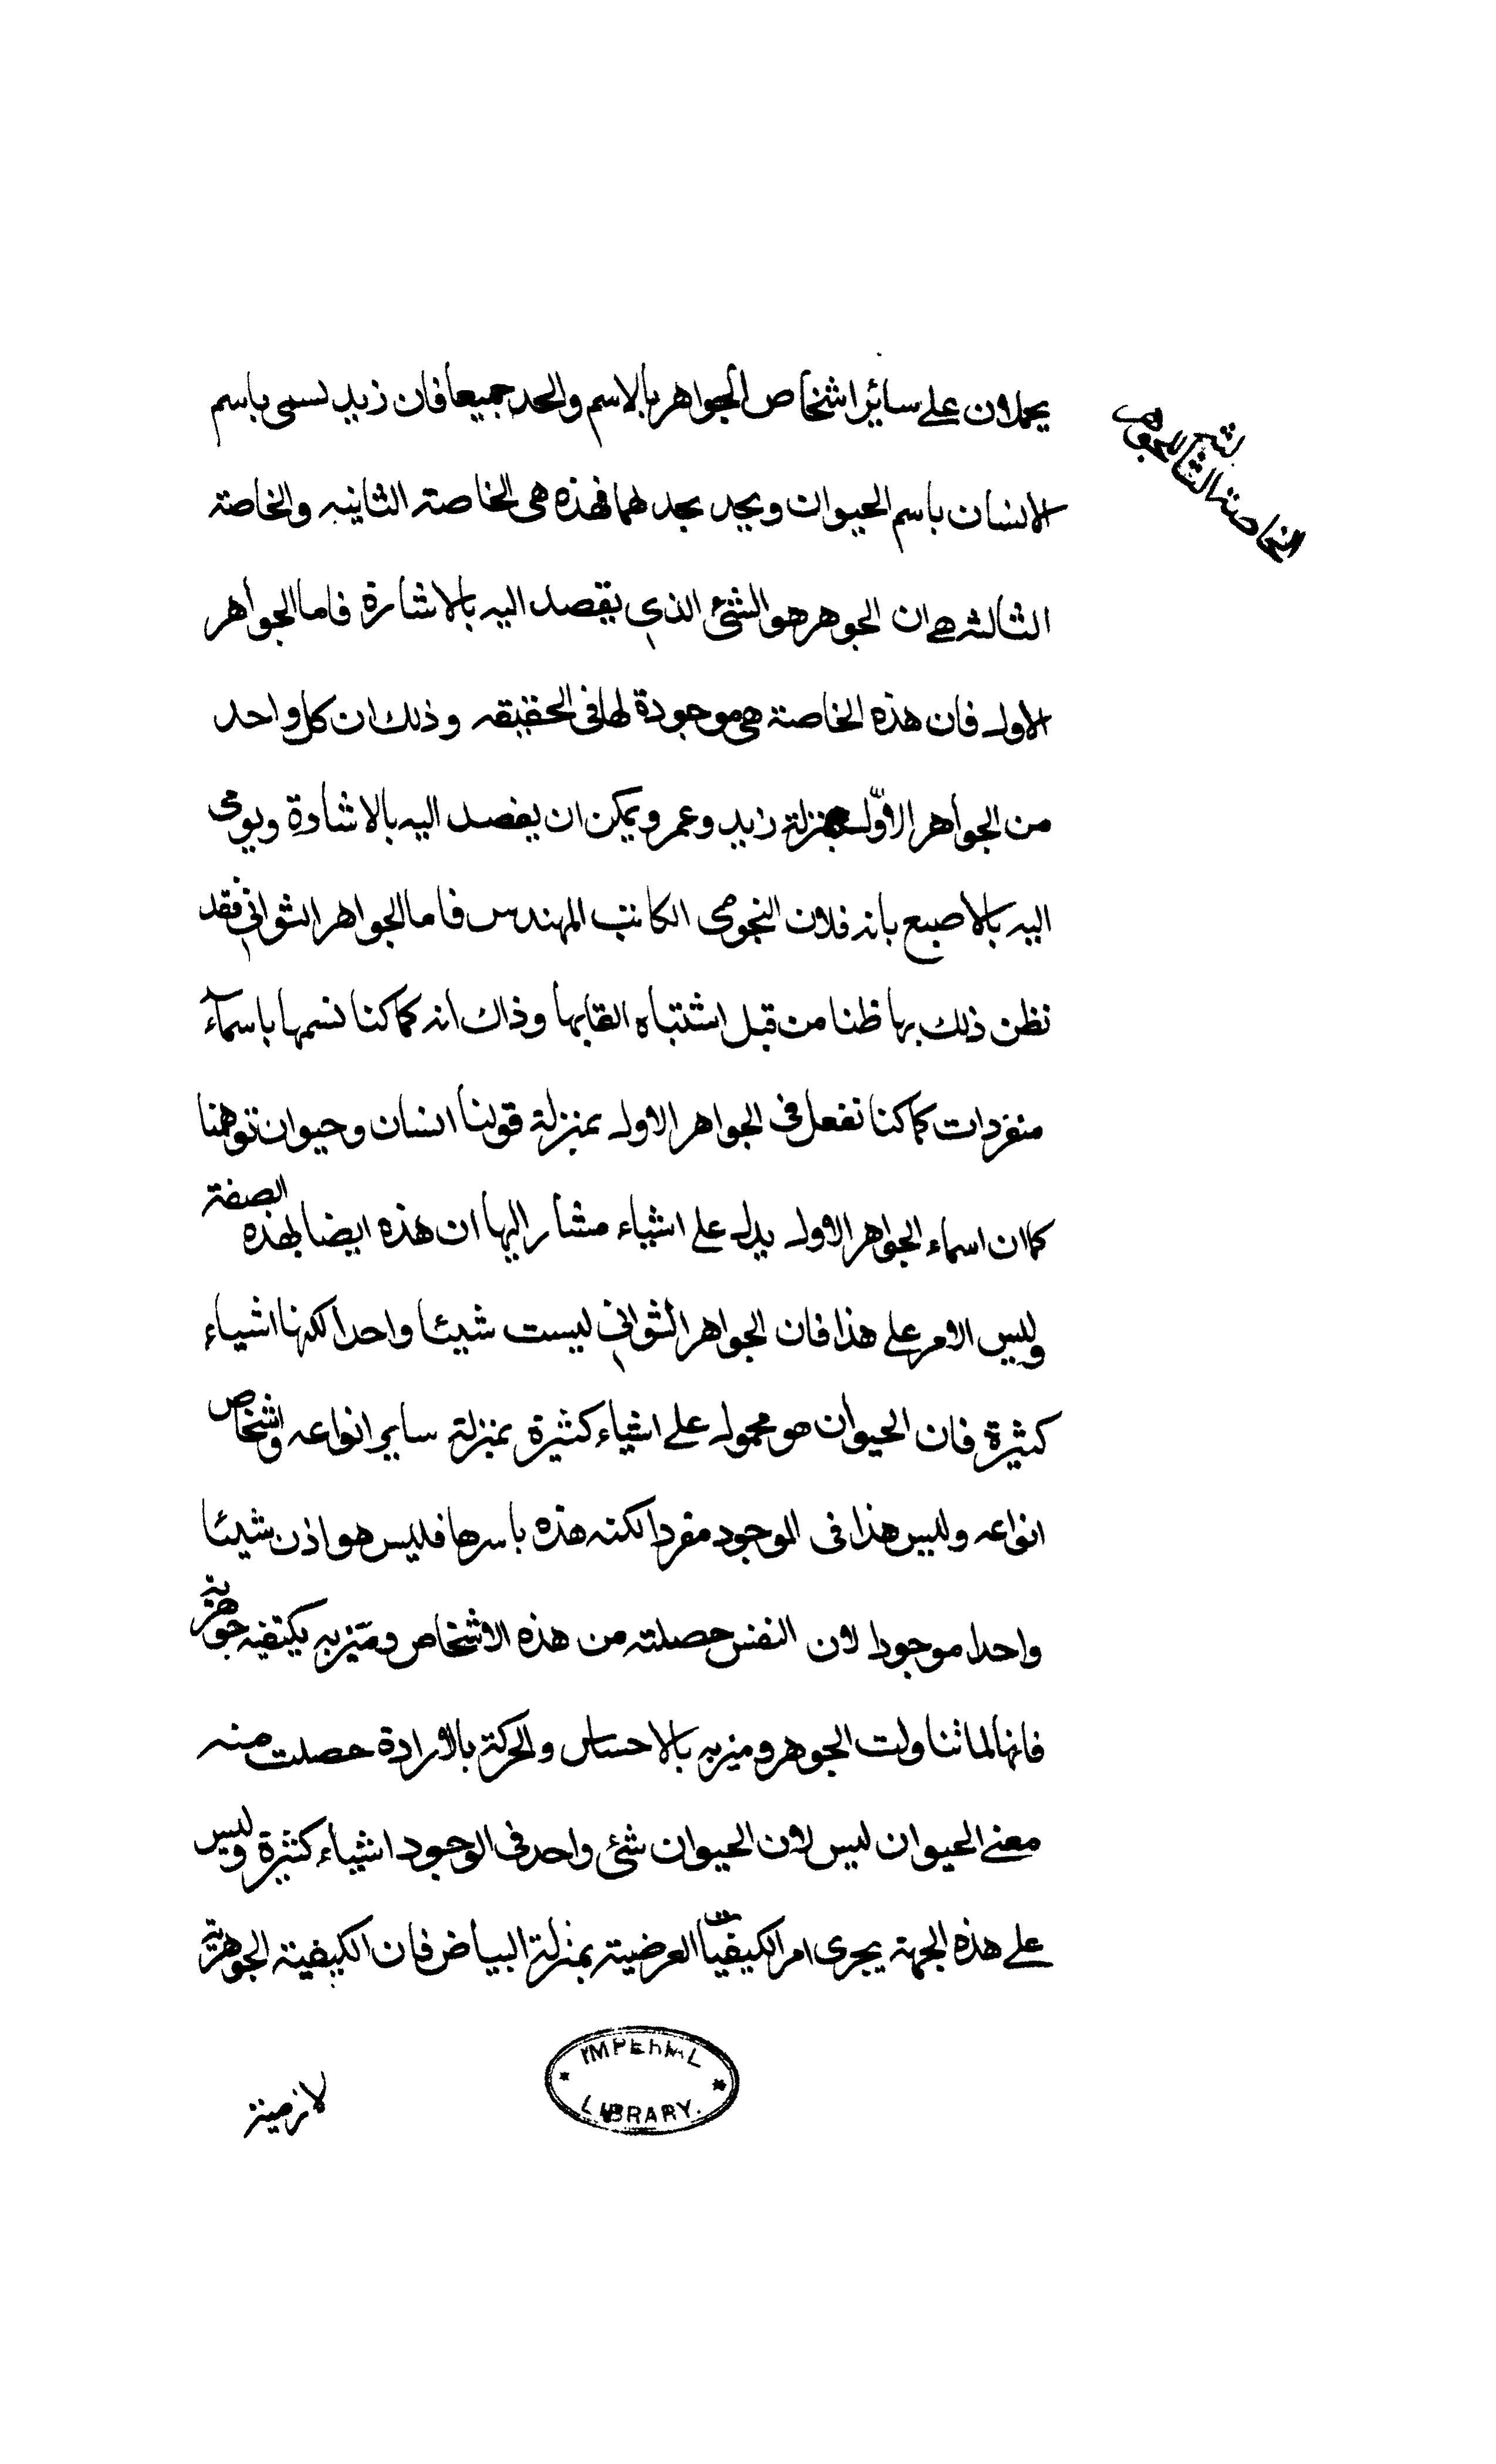 يحملان على سائر اشخاص الجواهر بالاسم والحد جميعا فان زيد يسمى باسم
الانسان باسم الحيوان ويحد بحد لهما فهذه هى الخاصة الثانيه والخاصة
الخاصة الثالثة للجوهر
الثالثه هى ان الجوهر هو الشئ الذي يقصد اليه بالاشارة فاما الجواهر
الاول فان هذه الخاصة هى موجودة لها فى الحقيقه وذلك ان كل واحد
من الجواهر الاوّل بمنزلة زيد وعمرو يمكن ان يقصد اليه بالاشارة ويومى
اليه بالاصبع بانه فلان النجومى الكاتب المهندس فاما الجواهر الثواني فقد
نظن ذلك بها ظنا من قبل اشتباه القابها وذاك انه كما كنا نسمها باسمآء
منفردات كما كنا نفعل فى الجواهر الاول بمنزلة قولنا انسان وحيوان توهمنا
كما ان اسماء الجواهر الاول يدل على اشياء مشار اليها ان هذه ايضا بهذه الصفة
وليس الامر على هذا فان الجواهر الثواني ليست شيئا واحدا لكنها اشياء
كثيرة فان الحيوان هو محمول على اشياء كثيرة بمنزلة ساير انواعه واشخاص
انواعه وليس هذا فى الموجود مفردا لكنه هذه باسرها فليس هو اذن شيئا
واحدا موجودا لان النفس حصلته من هذه الاشخاص وميزته بكيفيه جوهرية
فانها لما تناولت الجوهر وميزته بالاحساس والحركة بالارادة حصلت منه
معنى الحيوان ليس لان الحيوان شئ واحد فى الوجود اشياء كثيرة وليس
على هذه الجهة يجرى امر الكيفيات العرضية بمنزلة البياض فان الكيفية الجوهرية
لازمة
IMPERIAL
LIBRARY.